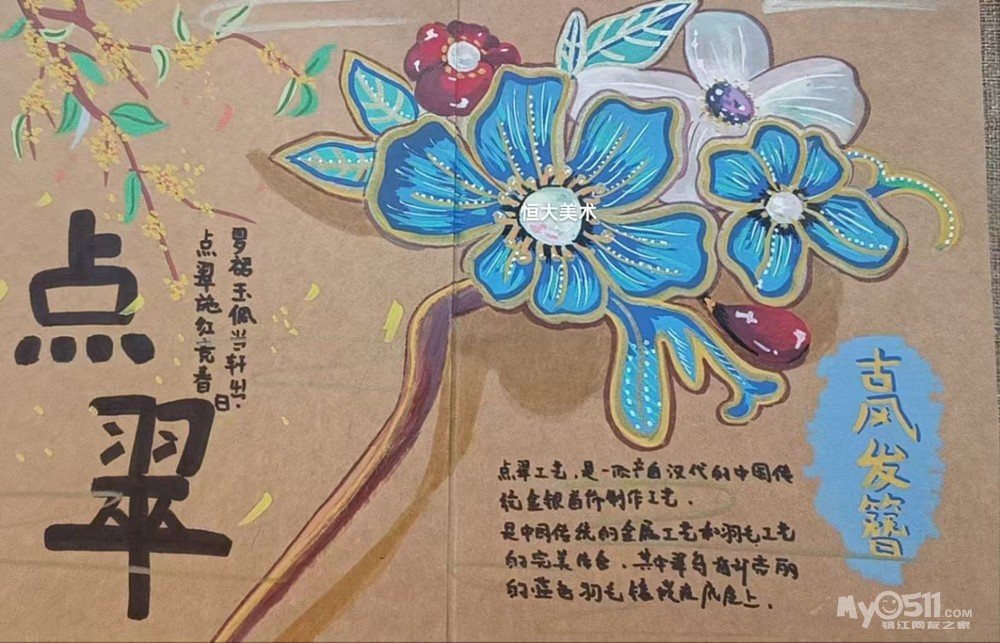 点翠
罗裙玉佩当轩出.
点翠施红竞春日
恒大美术
古风发簪
点翠工艺,是一项产自汉代的中国传
统金银首饰制作工艺.
是中国传统的金属工艺和羽毛工艺
的完美结合,其中翠鸟背部亮丽
的蓝色羽毛镶嵌在底座上.
My0511.COM
镇江网友之家